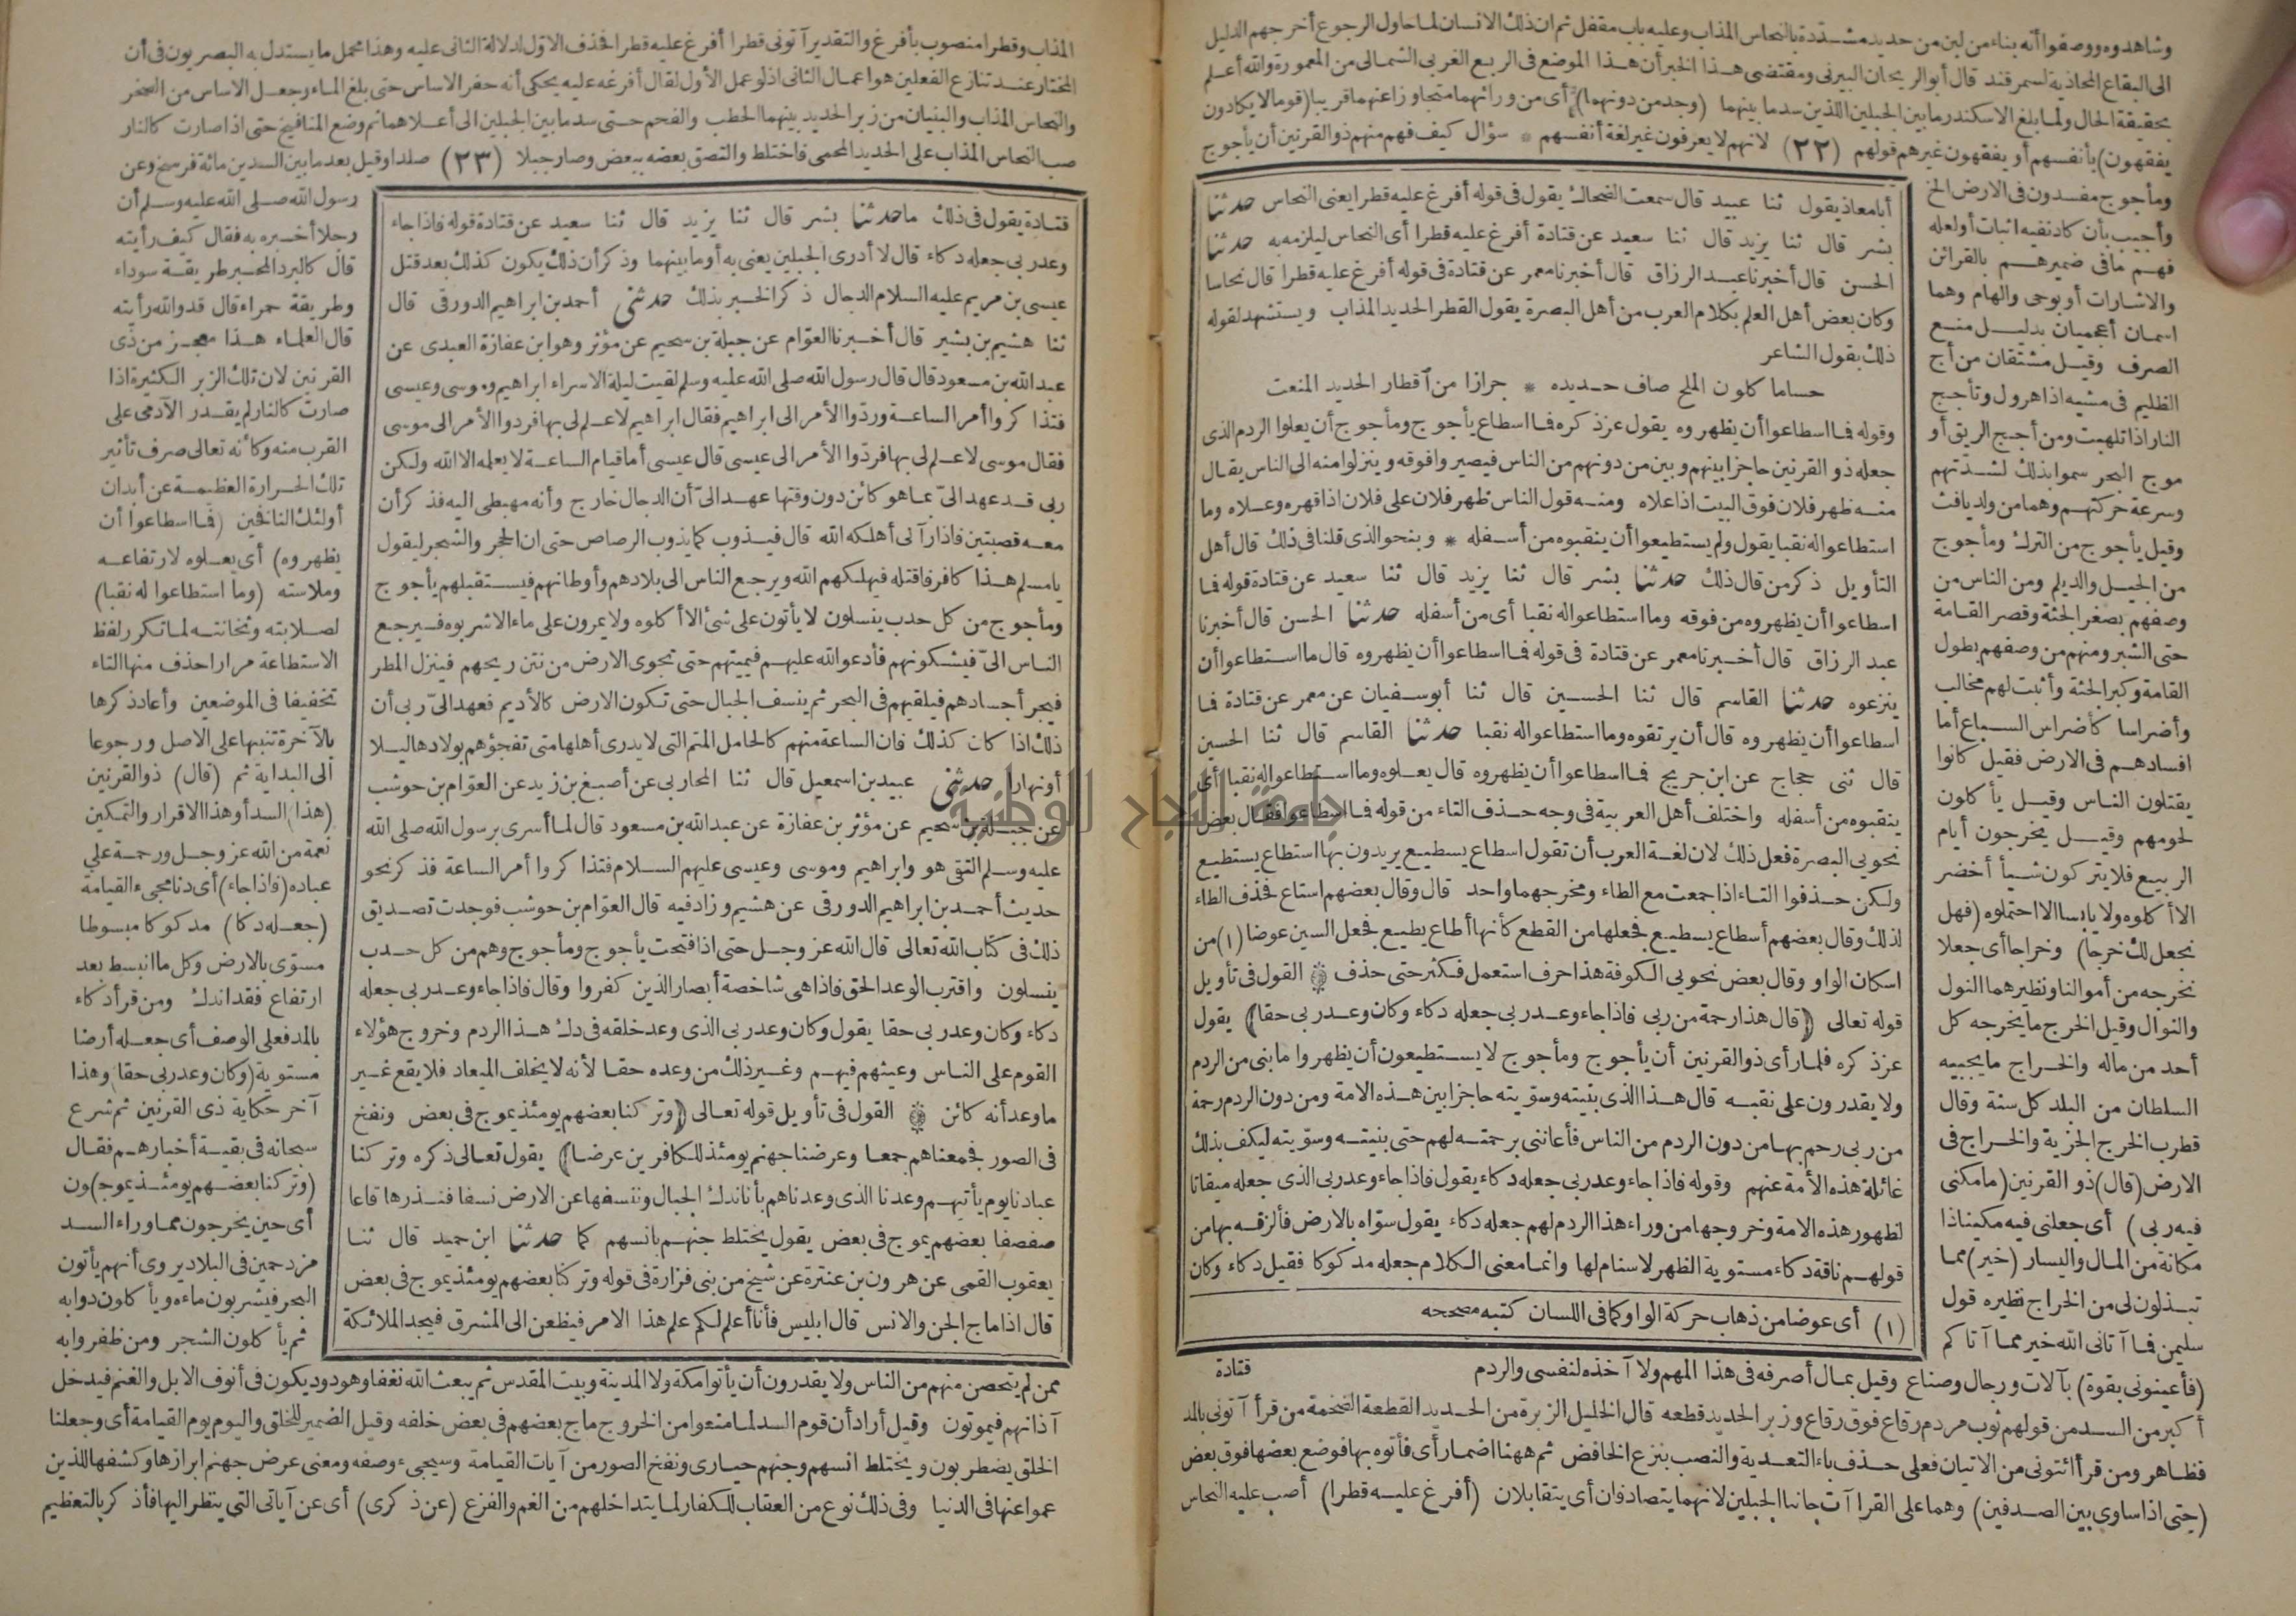 وشاهدوه ووصفوا أنه بناء من لبن من حديد مشددة بالنحاس المذاب وعليه باب مقفل ثم ان ذلك الانسان لما حاول الرجوع أخرجهم الدليل
الى البقاع المحاذية لسمرقند قال أبو الريحان البيرنى ومقتضى هذا الخبر أن هذا الموضع فى الربع الغربى الشمالى من المعمورة والله أعلم
بحقيقة الحال ولما بلغ الاسكندر ما بين الجبلين اللذين سد ما بينهما (وجد من دونهما) أى من ورائهما متجاوزا عنهما قريبا (قوما لا يكادون
يفقهون) بأنفسهم أو يفقهون غيرهم قولهم (٢٢) لانهم لا يعرفون غير لغة أنفسهم * سؤال كيف فهم منهم ذو القرنين أن يأجوج
ومأجوج مفسدون فى الارض الخ
وأجيب بأن كاد نفيه اثبات أو لعله
فهم ما فى ضميرهم بالقرائن
والاشارات أو بوحى والهام وهما
اسمان أعجميان بدليل منع
الصرف وقيل مشتقان من أج
الظليم فى مشيه اذا هرول وتأجج
النار اذا تلهبت ومن أجج الريق أو
موج البحر سموا بذلك لشدتهم
وسرعة حركتهم وهما من ولد يافث
وقيل يأجوج من الترك ومأجوج
من الجيل والديلم ومن الناس من
وصفهم بصغر الجثة وقصر القامة
حتى الشبر ومنهم من وصفهم بطول
القامة وكبر الجثة وأثبت لهم مخالب
وأضراسا كأضراس السباع أما
افسادهم فى الارض فقيل كانوا
يقتلون الناس وقيل يأكلون
لحومهم وقيل يخرجون أيام
الربيع فلا يتركون شيأ أخضر
الا أكلوه ولا يابسا الا احتملوه (فهل
نجعل لك خرجا) وخراجا أى جعلا
نخرجه من أموالنا ونظيرهما النول
والنوال وقيل الخرج ما يخرجه كل
أحد من ماله والخراج ما يجبيه
السلطان من البلد كل سنة وقال
قطرب الخرج الجزية والخراج فى
الارض (قال) ذو القرنين (ما مكنى
فيه ربى) أى جعلنى فيه مكينا ذا
مكانة من المال واليسار (خير) مما
تبذلون لى من الخراج نظيره قول
سليمن فما آتانى الله خير مما آتاكم
أبا معاذ يقول ثنا عبيد قال سمعت الضحاك يقول فى قوله أفرغ عليه قطرا يعنى النحاس حدثنا
بشر قال ثنا يزيد قال ثنا سعيد عن قتادة أفرغ عليه قطرا أى النحاس ليلزمه به حدثنا
الحسن قال أخبرنا عبد الرزاق قال أخبرنا معمر عن قتادة فى قوله أفرغ عليه قطرا قال نحاسا
وكان بعض أهل العلم بكلام العرب من أهل البصرة يقول القطر الحديد المذاب ويستشهد لقوله
ذلك بقول الشاعر
حساما كلون الملح صاف حديده * جرازا من أقطار الحديد المنعت
وقوله فما اسطاعوا أن يظهروه يقول عز ذكره فما اسطاع يأجوج ومأجوج أن يعلوا الردم الذى
جعله ذو القرنين حاجزا بينهم وبين من دونهم من الناس فيصيروا فوقه وينزلوا منه الى الناس يقال
منه ظهر فلان فوق البيت اذا علاه ومنه قول الناس ظهر فلان على فلان اذا قهره وعلاه وما
استطاعوا له نقبا يقول ولم يستطيعوا أن ينقبوه من أسفله * وبنحو الذى قلنا فى ذلك قال أهل
التأويل ذكر من قال ذلك حدثنا بشر قال ثنا يزيد قال ثنا سعيد عن قتادة قوله فما
اسطاعوا أن يظهروه من فوقه وما استطاعوا له نقبا أى من أسفله حدثنا الحسن قال أخبرنا
عبد الرزاق قال أخبرنا معمر عن قتادة فى قوله فما اسطاعوا أن يظهروه قال ما استطاعوا أن
ينزعوه حدثنا القاسم قال ثنا الحسين قال ثنا أبو سفيان عن معمر عن قتادة فما
اسطاعوا أن يظهروه قال أن يرتقوه وما استطاعوا له نقبا حدثنا القاسم قال ثنا الحسين
قال ثنى حجاج عن ابن جريج فما اسطاعوا أن يظهروه قال يعلوه وما استطاعوا له نقبا أى
ينقبوه من أسفله واختلف أهل العربية فى وجه حذف التاء من قوله فما اسطاعوا فقال بعض
نحويى البصرة فعل ذلك لان لغة العرب أن تقول اسطاع يسطيع يريدون بها استطاع يستطيع
ولكن حذفوا التاء اذا جمعت مع الطاء ومخرجهما واحد قال وقال بعضهم استاع فحذف الطاء
لذلك وقال بعضهم أسطاع يسطيع فجعلها من القطع كأنها أطاع يطيع فجعل السين عوضا (١) من
اسكان الواو وقال بعض نحويى الكوفة هذا حرف استعمل فكثر حتى حذف القول فى تأويل
قوله تعالى (قال هذا رحمة من ربى فاذا جاء وعد ربى جعله دكاء وكان وعد ربى حقا) يقول
عز ذكره فلما رأى ذو القرنين أن يأجوج ومأجوج لا يستطيعون أن يظهروا ما بنى من الردم
ولا يقدرون على نقبه قال هذا الذى بنيته وسويته حاجزا بين هذه الامة ومن دون الردم رحمة
من ربى رحم بها من دون الردم من الناس فأعاننى برحمته لهم حتى بنيته وسويته ليكف بذلك
غائلة هذه الأمة عنهم وقوله فاذا جاء وعد ربى جعله دكاء يقول فاذا جاء وعد ربى الذى جعله ميقاتا
لظهور هذه الامة وخروجها من وراء هذا الردم لهم جعله دكاء يقول سواه بالارض فألزقه بها من
قولهم ناقة دكاء مستوية الظهر لا سنام لها وانما معنى الكلام جعله مدكوكا فقيل دكاء وكان
(١) أى عوضا من ذهاب حركة الواو كما فى اللسان كتبه مصححه
قتادة
(فأعينونى بقوة) بآلات ورجال وصناع وقيل بمال أصرفه فى هذا المهم ولا آخذه لنفسى والردم
أكبر من السد من قولهم ثوب مردم رقاع فوق رقاع وزبر الحديد قطعه قال الخليل الزبرة من الحديد القطعة الضخمة من قرأ آتونى بالمد
فظاهر ومن قرأ ائتونى من الاتيان فعلى حذف باء التعدية والنصب بنزع الخافض ثم ههنا اضمار أى فأتوه بها فوضع بعضها فوق بعض
(حتى اذا ساوى بين الصدفين) وهما على القراآت جانبا الجبلين لانهما يتصادفان أى يتقابلان (أفرغ عليه قطرا) أصب عليه النحاس
المذاب وقطرا منصوب بأفرغ والتقدير آتونى قطرا أفرغ عليه قطرا فحذف الاول لدلالة الثانى عليه وهذا محمل ما يستدل به البصريون فى أن
المختار عند تنازع الفعلين هو اعمال الثانى اذ لو عمل الأول لقال أفرغه عليه يحكى أنه حفر الاساس حتى بلغ الماء وجعل الاساس من الصخر
والنحاس المذاب والبنيان من زبر الحديد بينهما الحطب والفحم حتى سد ما بين الجبلين الى أعلاهما ثم وضع المنافيخ حتى اذا صارت كالنار
صب النحاس المذاب على الحديد المحمى فاختلط والتصق بعضه ببعض وصار جبلا (٢٣) صلدا وقيل بعد ما بين السدين مائة فرسخ وعن
رسول الله صلى الله عليه وسلم أن
رجلا أخبره به فقال كيف رأيته
قال كالبرد المحبر طريقة سوداء
وطريقة حمراء قال قد والله رأيته
قال العلماء هذا معجز من ذى
القرنين لان تلك الزبر الكثيرة اذا
صارت كالنار لم يقدر الآدمى على
القرب منه وكأنه تعالى صرف تأثير
تلك الحرارة العظيمة عن أبدان
أولئك النافخين (فما اسطاعوا أن
يظهروه) أى يعلوه لارتفاعه
وملاسته (وما استطاعوا له نقبا)
لصلابته وثخانته لما تكرر لفظ
الاستطاعة مرارا حذف منها التاء
تخفيفا فى الموضعين وأعاد ذكرها
بالآخرة تنبيها على الاصل ورجوعا
الى البداية ثم (قال) ذو القرنين
(هذا) السد أو هذا الاقرار والتمكين
نعمة من الله عز وجل ورحمة على
عباده (فاذا جاء) أى دنا مجىء القيامة
(جعله دكا) مدكوكا مبسوطا
مسوى بالارض وكل ما انبسط بعد
ارتفاع فقد اندك ومن قرأ دكاء
بالمد فعلى الوصف أى جعله أرضا
مستوية (وكان وعد ربى حقا) وهذا
آخر حكاية ذى القرنين ثم شرع
سبحانه فى بقية أخبارهم فقال
(وتركنا بعضهم يومئذ يموج) ون
أى حين يخرجون مما وراء السد
مزدحمين فى البلاد يروى أنهم يأتون
البحر فيشربون ماءه ويأكلون دوابه
ثم يأكلون الشجر ومن ظفروا به
قتادة يقول فى ذلك ما حدثنا بشر قال ثنا يزيد قال ثنا سعيد عن قتادة قوله فاذا جاء
وعد ربى جعله دكاء قال لا أدرى الجبلين يعنى به أو ما بينهما وذكر أن ذلك يكون كذلك بعد قتل
عيسى بن مريم عليه السلام الدجال ذكر الخبر بذلك حدثنى أحمد بن ابراهيم الدورقى قال
ثنا هشيم بن بشير قال أخبرنا العوام عن جبلة بن سحيم عن مؤثر وهو ابن عفازة العبدى عن
عبد الله بن مسعود قال قال رسول الله صلى الله عليه وسلم لقيت ليلة الاسراء ابراهيم وموسى وعيسى
فتذاكروا أمر الساعة وردوا الأمر الى ابراهيم فقال ابراهيم لا علم لى بها فردوا الامر الى موسى
فقال موسى لا علم لى بها فردوا الأمر الى عيسى قال عيسى أما قيام الساعة لا يعلمه الا الله ولكن
ربى قد عهد الى بما هو كائن دون وقتها عهد الى أن الدجال خارج وأنه مهبطى اليه فذكر أن
معه قصبتين فاذا رآنى أهلكه الله قال فيذوب كما يذوب الرصاص حتى ان الحجر والشجر ليقول
يا مسلم هذا كافر فاقتله فيهلكهم الله ويرجع الناس الى بلادهم وأوطانهم فيستقبلهم يأجوج
ومأجوج من كل حدب ينسلون لا يأتون على شئ الا أكلوه ولا يمرون على ماء الا شربوه فيرجع
الناس الى فيشكونهم فأدعو الله عليهم فيميتهم حتى تجوى الارض من نتن ريحهم فينزل المطر
فيجر أجسادهم فيلقيهم فى البحر ثم ينسف الجبال حتى تكون الارض كالأديم فعهد الى ربى أن
ذلك اذا كان كذلك فان الساعة منهم كالحامل المتم التى لا يدرى أهلها متى تفجؤهم بولادها ليلا
أو نهارا حدثنى عبيد بن اسمعيل قال ثنا المحاربى عن أصبغ بن زيد عن العوام بن حوشب
عن جبلة بن سحيم عن مؤثر بن عفازة عن عبد الله بن مسعود قال لما أسرى برسول الله صلى الله
عليه وسلم التقى هو وابراهيم وموسى وعيسى عليهم السلام فتذاكروا أمر الساعة فذكر نحو
حديث أحمد بن ابراهيم الدورقى عن هشيم وزاد فيه قال العوام بن حوشب فوجدت تصديق
ذلك فى كتاب الله تعالى قال الله عز وجل حتى اذا فتحت يأجوج ومأجوج وهم من كل حدب
ينسلون واقترب الوعد الحق فاذا هى شاخصة أبصار الذين كفروا وقال فاذا جاء وعد ربى جعله
دكاء وكان وعد ربى حقا يقول وكان وعد ربى الذى وعد خلقه فى دك هذا الردم وخروج هؤلاء
القوم على الناس وعيثهم فيهم وغير ذلك من وعده حقا لأنه لا يخلف الميعاد فلا يقع غير
ما وعد أنه كائن القول فى تأويل قوله تعالى (وتركنا بعضهم يومئذ يموج فى بعض ونفخ
فى الصور فجمعناهم جمعا وعرضنا جهنم يومئذ للكافرين عرضا) يقول تعالى ذكره وتركنا
عبادنا يوم يأتيهم وعدنا الذى وعدناهم بأنا ندك الجبال وننسفها عن الارض نسفا فنذرها قاعا
صفصفا بعضهم يموج فى بعض يقول يختلط جنهم بانسهم كما حدثنا ابن حميد قال ثنا
يعقوب القمى عن هرون بن عنترة عن شيخ من بنى فزارة فى قوله وتركنا بعضهم يومئذ يموج فى بعض
قال اذا ماج الجن والانس قال ابليس فأنا أعلم لكم علم هذا الامر فيظعن الى المشرق فيجد الملائكة
ممن لم يتحصن منهم من الناس ولا يقدرون أن يأتوا مكة ولا المدينة وبيت المقدس ثم يبعث الله نغفا وهو دود يكون فى أنوف الابل والغنم فيدخل
آذانهم فيموتون وقيل أراد أن قوم السد لما منعوا من الخروج ماج بعضهم فى بعض خلفه وقيل الضمير للخلق واليوم يوم القيامة أى وجعلنا
الخلق يضطربون ويختلط انسهم وجنهم حيارى ونفخ الصور من آيات القيامة وسيجىء وصفه ومعنى عرض جهنم ابرازها وكشفها للذين
عموا عنها فى الدنيا وفى ذلك نوع من العقاب للكفار لما يتداخلهم من الغم والفزع (عن ذكرى) أى عن آياتى التى ينظر اليها فأذكر بالتعظيم
جامعة النجاح الوطنية